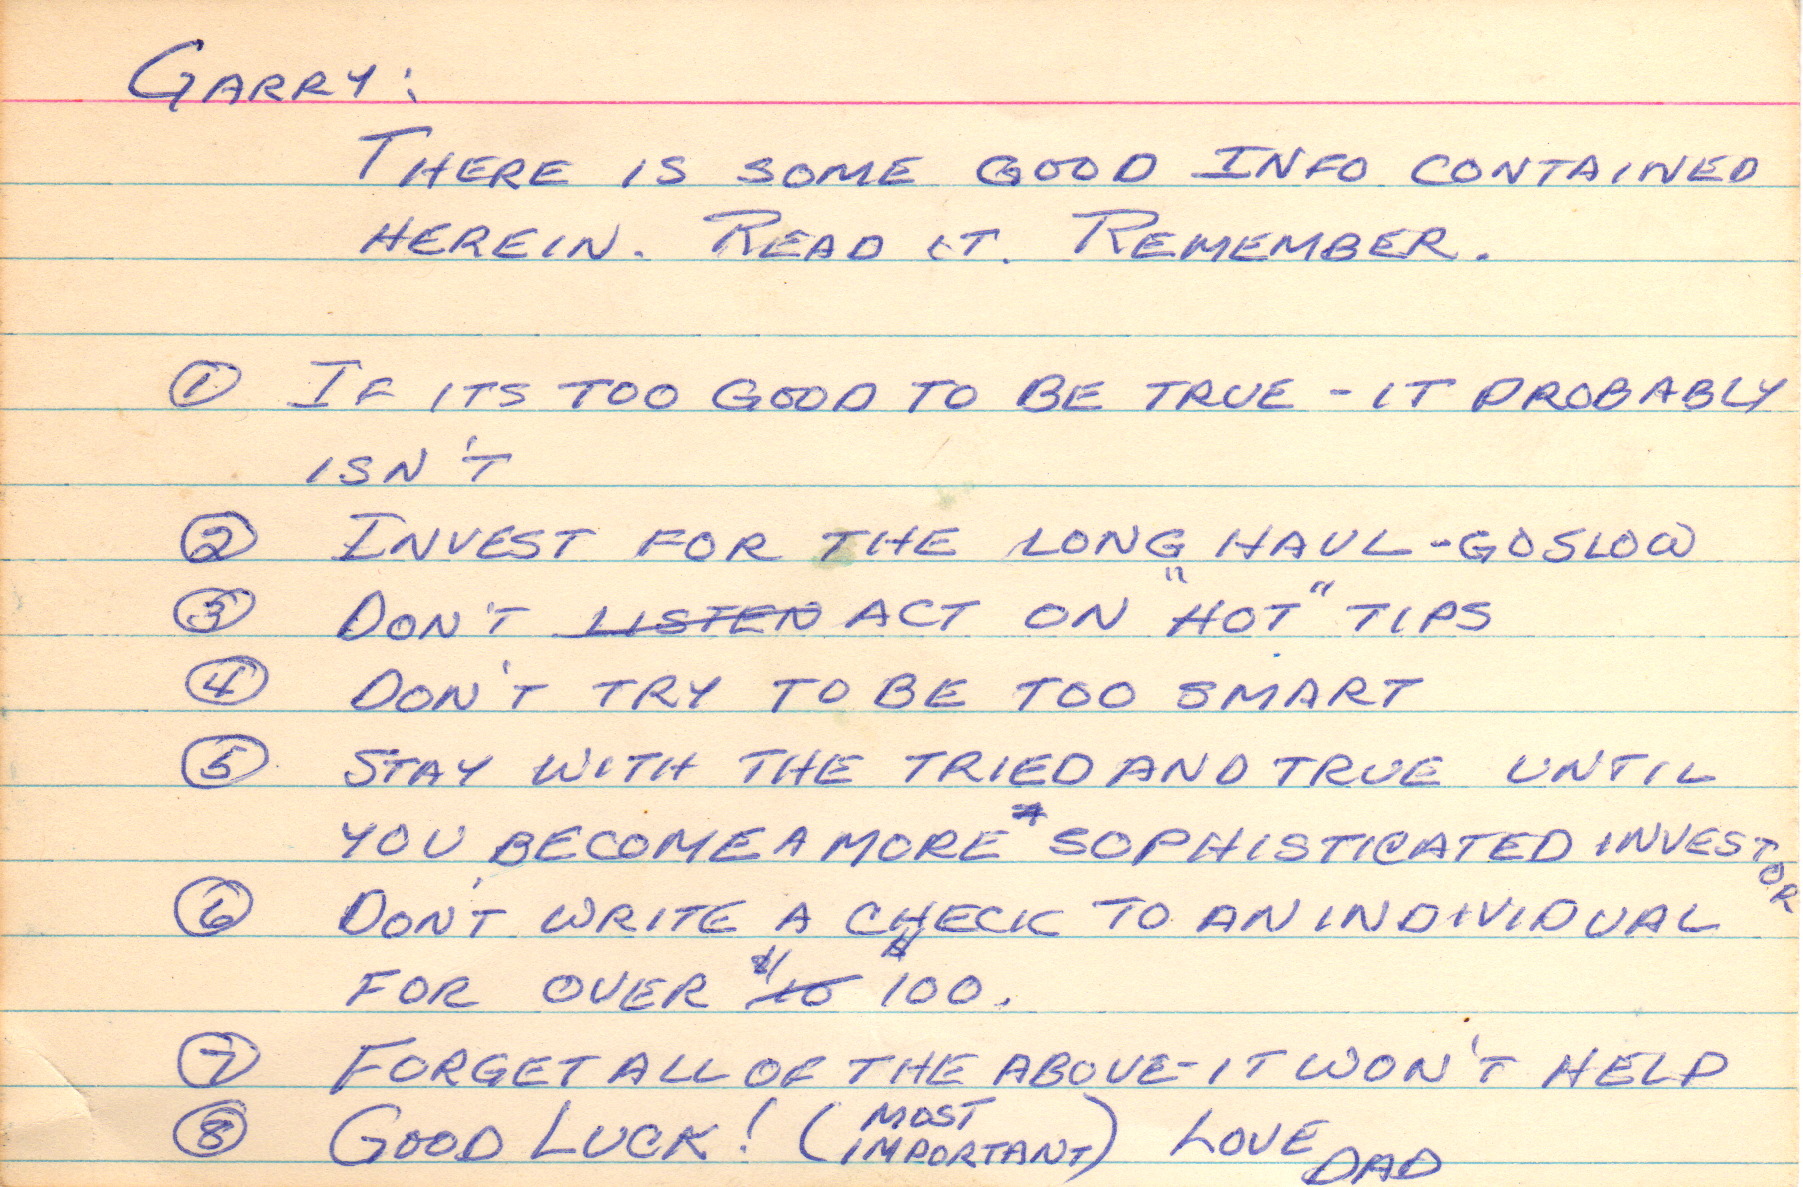 GARRY:
THERE IS SOME GOOD INFO CONTAINED
HEREIN. READ IT. REMEMBER.
① IF ITS TOO GOOD TO BE TRUE - IT PROBABLY
ISN'T
② INVEST FOR THE LONG HAUL - GO SLOW
③ DON'T LISTEN ACT ON "HOT" TIPS
④ DON'T TRY TO BE TOO SMART
⑤ STAY WITH THE TRIED AND TRUE UNTIL
YOU BECOME A MORE * SOPHISTICATED INVESTOR
⑥ DON'T WRITE A CHECK TO AN INDIVIDUAL
FOR OVER $10 $100.
⑦ FORGET ALL OF THE ABOVE - IT WON'T HELP
⑧ GOOD LUCK! (MOST IMPORTANT) LOVE
DAD